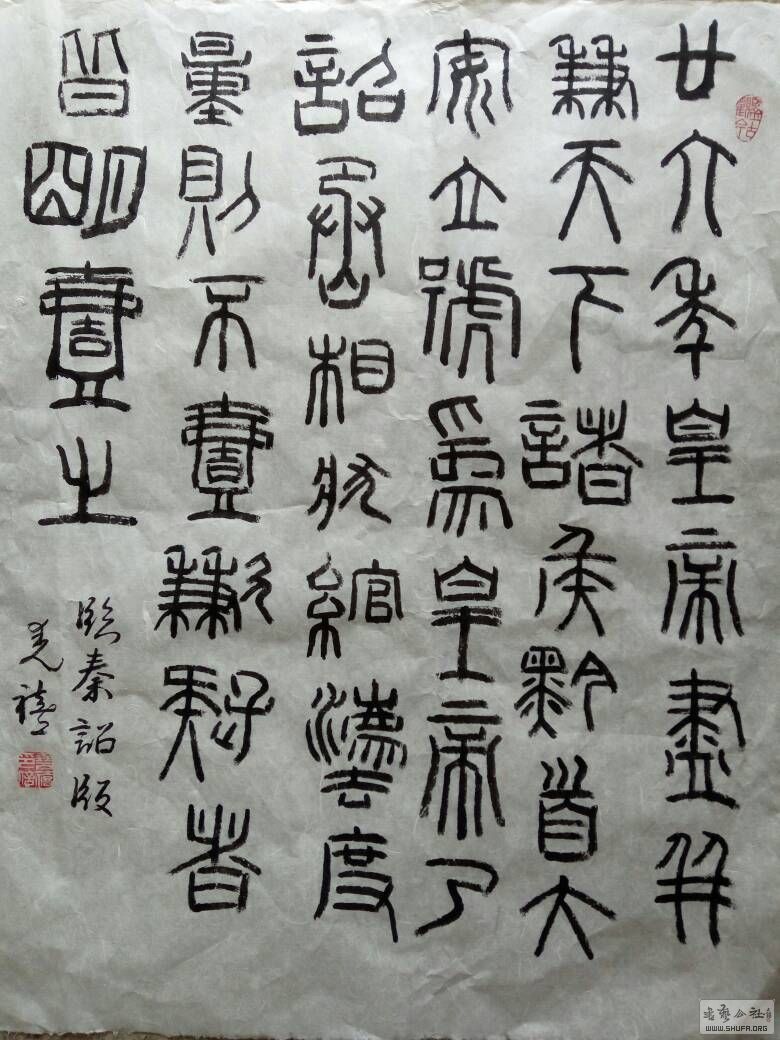 廿六年皇帝盡并
兼天下諸侯黔首大
安立號為皇帝乃
詔丞相狀綰灋度
量則不壹歉疑者
皆明壹之
臨秦詔版
禧
書藝公社
WWW.SHUFA.ORG